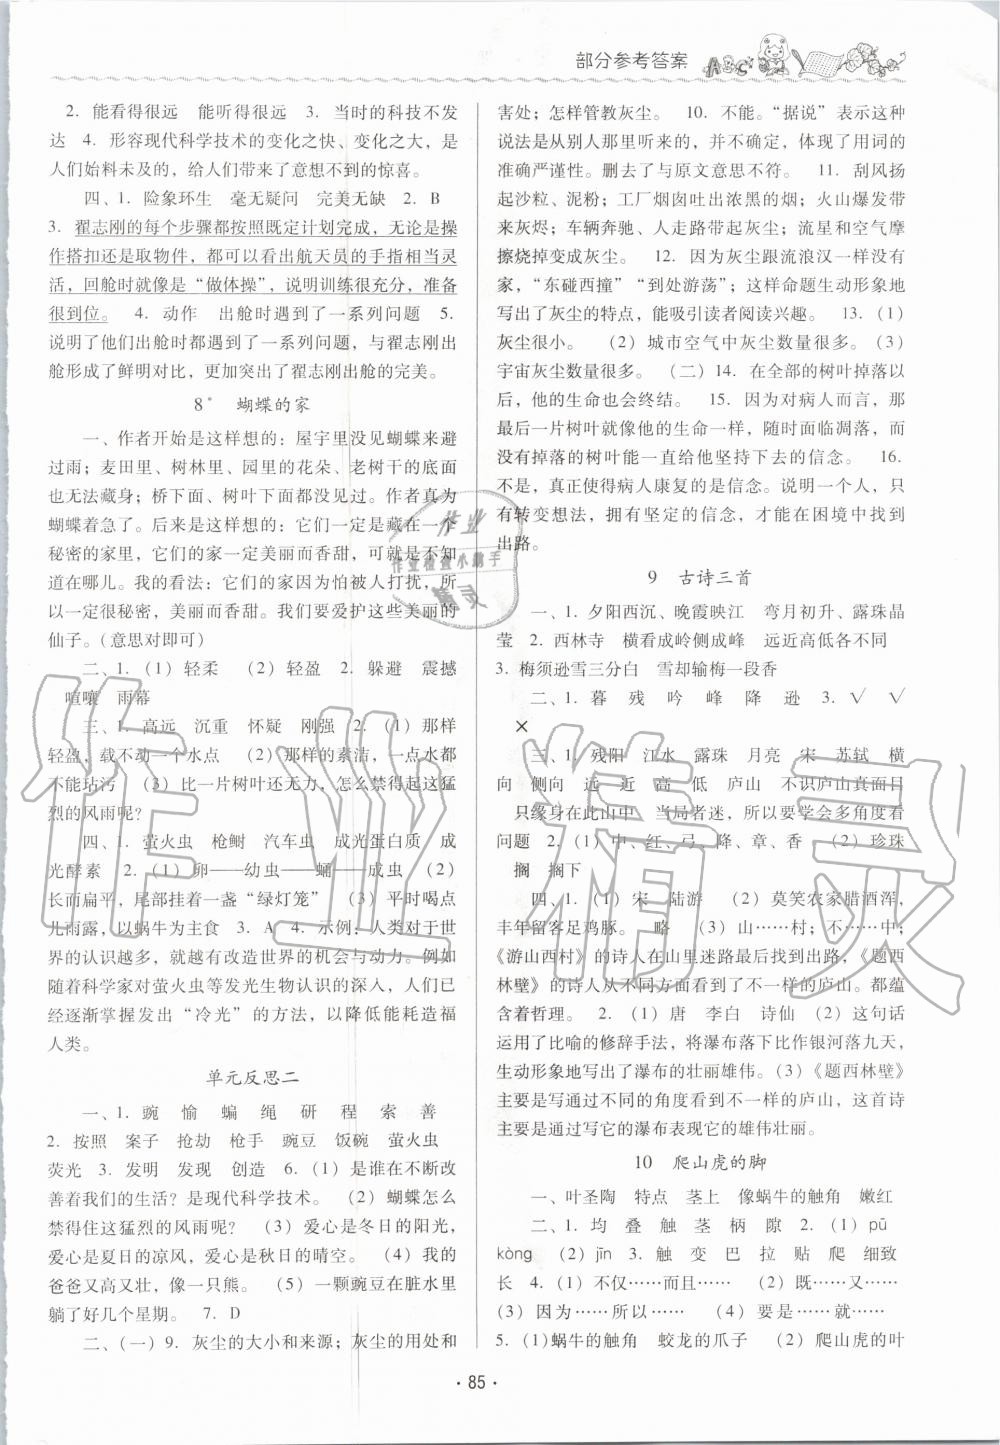 部分参考答案
ABC
2. 能看得很远　能听得很远　3. 当时的科技不发
达　4. 形容现代科学技术的变化之快、变化之大，是
人们始料未及的，给人们带来了意想不到的惊喜。
四、1. 险象环生　毫无疑问　完美无缺　2. B
3. 翟志刚的每个步骤都按照既定计划完成，无论是操
作搭扣还是取物件，都可以看出航天员的手指相当灵
活，回舱时就像是“做体操”，说明训练很充分，准备
很到位。　4. 动作　出舱时遇到了一系列问题　5.
说明了他们出舱时都遇到了一系列问题，与翟志刚出
舱形成了鲜明对比，更加突出了翟志刚出舱的完美。
8* 蝴蝶的家
一、作者开始是这样想的：屋宇里没见蝴蝶来避
过雨；麦田里、树林里、园里的花朵、老菱干的底面
也无法藏身；桥下面、树叶下面也不可以。作者真为
蝴蝶着急了。后来是这样想的：它们一定是藏在一个
秘密的家里，它们的家一定美丽而香甜，可是我不知
道在哪儿。我的看法：它们的家不怕被人打扰，所
以一定很秘密，美丽而香甜。我们要爱护这些美丽的
仙子。（意思对即可）
二、1.（1）轻柔　（2）轻盈　2. 躲避　震撼
喧嚷　雨幕
三、1. 高远　沉重　怀疑　刚强　2.（1）那样
轻盈，载不动一个水点　（2）那样的素洁，一点水都
不能玷污　（3）比一片树叶还无力，怎么禁得起这猛
烈的风雨呢？
四、1. 萤火虫　枪鲋　汽车虫　成光蛋白质　成
光酵素　2.（1）卵——幼虫——蛹——成虫　（2）
长而扁平，尾部挂着一盏“绿灯笼”　（3）平时喝点
儿雨露，以蜗牛为主食　3. A　4. 示例：人类对于世
界的认识越多，就越有改造世界的机会与动力。例如
随着科学家对萤火虫等发光生物认识的深入，人们已
经逐渐掌握发出“冷光”的方法，以降低能耗造福
人类。
单元反思二
一、1. 豌　愉　蝙　绳　研　程　索　善
2. 按照　案子　抢劫　枪手　豌豆　饭碗　萤火虫
荧光　3. 发明　发现　创造　6.（1）是谁在不断改
善着我们的生活？是现代科学技术。　（2）蝴蝶怎么
禁得住这猛烈的风雨呢？　（3）爱心是冬日的阳光，
爱心是夏日的凉风，爱心是秋日的晴空。　（4）我的
爸爸又高又壮，像一只熊。　（5）一颗豌豆在脏水里
躺了好几个星期。　7. D
二、（一）9. 灰尘的大小和来源；灰尘的用处和
害处；怎样管教灰尘。　10. 不能。“据说”表示这种
说法是从别人那里听来的，并不确定，体现了用词的
准确严谨性。删去了与原文意思不符。　11. 刮风扬
起沙粒、泥粉；工厂烟囱吐出浓黑的烟；火山爆发带
来灰烬；车辆奔驰、人走路带起尘土；流星和空气摩
擦烧掉变成灰尘。　12. 因为灰尘跟流浪汉一样没有
家，“东碰西撞”“到处游荡”；这样命题生动形象地
写出了灰尘的特点，能吸引读者阅读兴趣。　13.（1）
灰尘很小。　（2）城市空气中灰尘数量很多。（3）
宇宙灰尘数量很多。　（二）14. 在全部的树叶掉落以
后，他的生命也会终结。　15. 因为对病人而言，那
最后一片树叶就像他的生命一样，随时面临凋落，而
没有掉落的树叶能一直给他坚持下去的信念。　16.
不是，真正使得病人康复的是信念。说明一个人，只
有转变想法，拥有坚定的信念，才能在困境中找到
出路。
9 古诗三首
一、1. 夕阳西沉、晚霞映江　弯月初升、露珠晶
莹　2. 西林寺　横看成岭侧成峰　远近高低各不同
3. 梅须逊雪三分白　雪却输梅一段香
二、1. 暮　残　吟　峰　降　逊　3. √　√
×
三、1. 残阳　江水　露珠　月亮　宋　苏轼　横
向　侧向　远　近　高　低　庐山　不识庐山真面目
只缘身在此山中　当局者迷，所以要学会多角度看
问题　2.（1）中、红、弓、降、章、香　（2）珍珠
搁　搁下
四、1.（1）宋　陆游　（2）莫笑农家腊酒浑，
丰年留客足鸡豚。　略　（3）山……村；不……中；
《游山西村》的诗人在山里迷路最后找到出路，《题西
林壁》的诗人从不同方面看到不一样的庐山。都蕴
含着哲理。　2.（1）唐　李白　诗仙　（2）这句话
运用了比喻的修辞手法，将瀑布落下比作银河落九天，
生动形象地写出了瀑布的壮丽雄伟。（3）《题西林壁》
主要是写了不同的角度看到不一样的庐山，这首诗
主要是通过写它的瀑布表现它的雄伟壮丽。
10 爬山虎的脚
一、叶圣陶　特点　茎上　像蜗牛的触角　嫩红
二、1. 均　叠　触　茎　柄　隙　2.（1）pū
kòng　（2）jīn　3. 触　变　巴　拉　贴　爬　细致
长　4.（1）不仅……而且……　（2）既……又……
（3）因为……所以……　（4）要是……就……
5.（1）蜗牛的触角　蛟龙的爪子　（2）爬山虎的叶
· 85 ·
作业
作业检查小助手
精灵
作业精灵